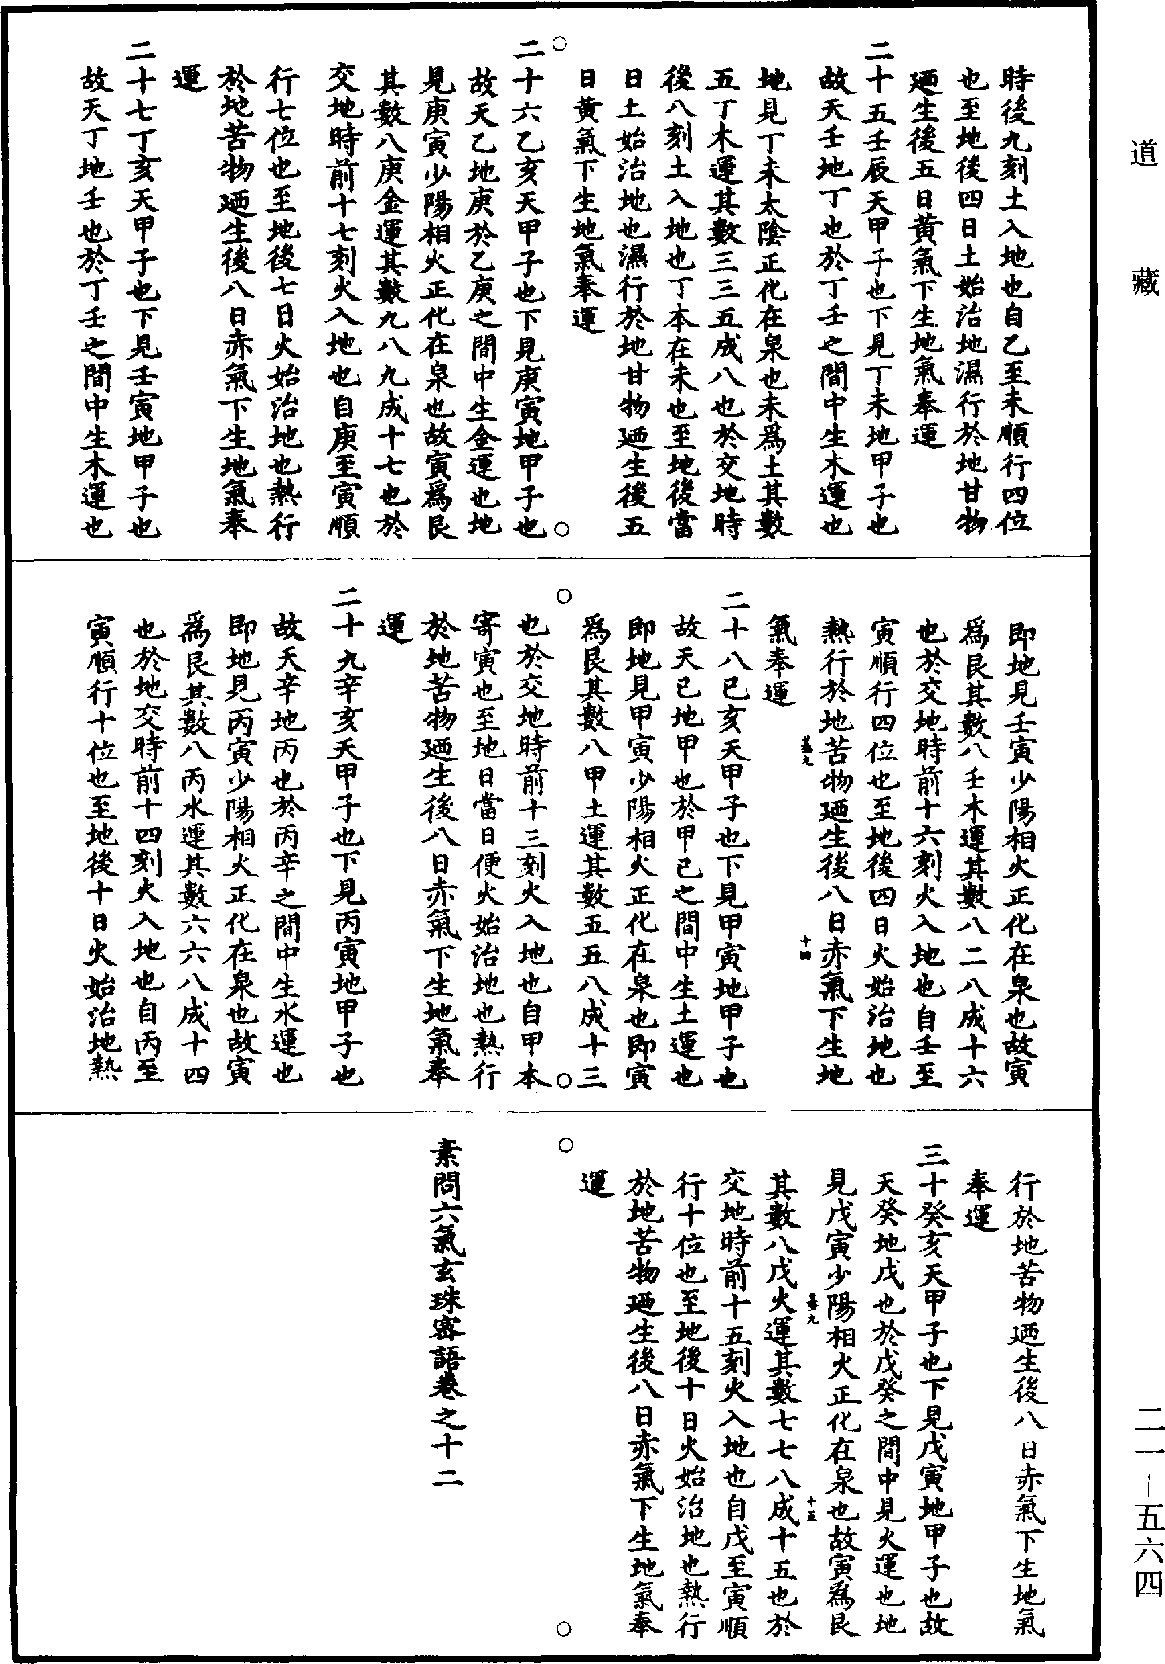 道藏
時後九刻土入地也自乙至未順行四位
也至地後四日土始治地濕行於地甘物
廼生後五日黃氣下生地氣奉運
二十五壬辰天甲子也下見丁未地甲子也
故天壬地丁也於丁壬之間中生木運也
地見丁未太陰正化在泉也未爲土其數
五丁木運其數三三五成八也於交地時
後八刻土入地也丁本在未也至地後當
日土始治地也濕行於地甘物廼生後五
日黃氣下生地氣奉運
二十六乙亥天甲子也下見庚寅地甲子也
故天乙地庚於乙庚之間中生金運也地
見庚寅少陽相火正化在泉也故寅爲艮
其數八庚金運其數九八九成十七也於
交地時前十七刻火入地也自庚至寅順
行七位也至地後七日火始治地也熱行
於地苦物廼生後八日赤氣下生地氣奉
運
二十七丁亥天甲子也下見壬寅地甲子也
故天丁地壬也於丁壬之間中生木運也
即地見壬寅少陽相火正化在泉也故寅
爲艮其數八壬木運其數八二八成十六
也於交地時前十六刻火入地也自壬至
寅順行四位也至地後四日火始治地也
熱行於地苦物廼生後八日赤氣下生地
十四
氣奉運
二十八己亥天甲子也下見甲寅地甲子也
故天己地甲也於甲己之間中生土運也
即地見甲寅少陽相火正化在泉也即寅
爲艮其數八甲土運其數五五八成十三
也於交地時前十三刻火入地也自甲本
寄寅也至地日當日便火始治地也熱行
於地苦物廼生後八日赤氣下生地氣奉
運
二十九辛亥天甲子也下見丙寅地甲子也
故天辛地丙也於丙辛之間中生水運也
即地見丙寅少陽相火正化在泉也故寅
爲艮其數八丙水運其數六六八成十四
也於地交時前十四刻火入地也自丙至
寅順行十位也至地後十日火始治地熱
行於地苦物廼生後八日赤氣下生地氣
奉運
三十癸亥天甲子也下見戊寅地甲子也故
天癸地戊也於戊癸之間中見火運也地
見戊寅少陽相火正化在泉也故寅爲艮
十五
其數八戊火運其數七七八成十五也於
交地時前十五刻火入地也自戊至寅順
行十位也至地後十日火始治地也熱行
於地苦物廼生後八日赤氣下生地氣奉
運
素問六氣玄珠密語卷之十二
二一－五六四